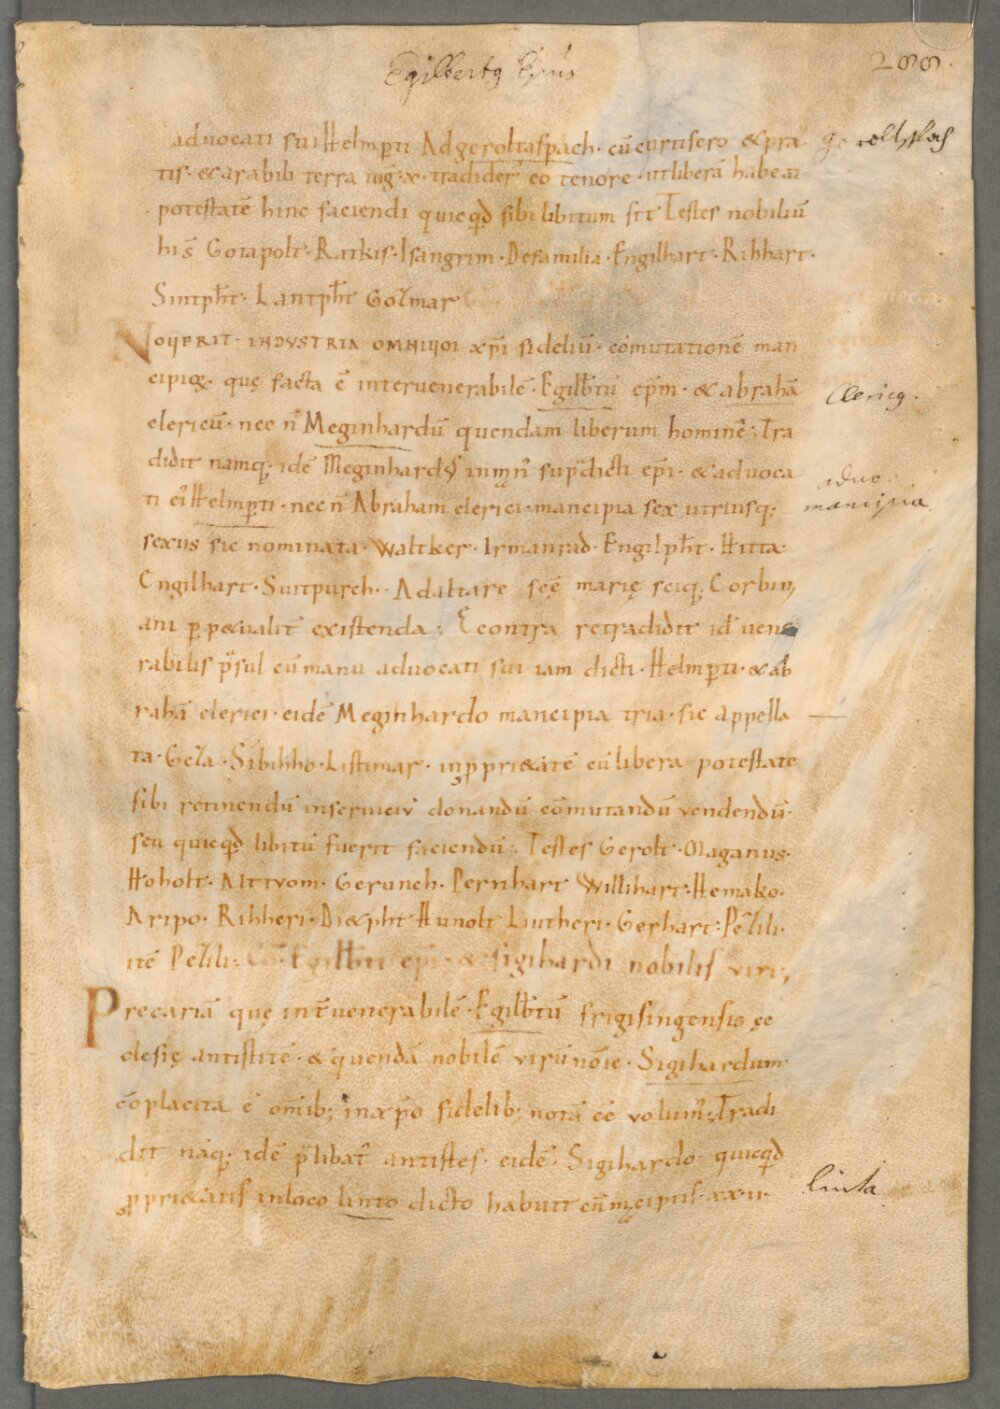 Egilbertꝯ Ep̃us
288.
advocati sui Helmp̱ti Ad geroltaspach· cū curtifero &pra
geroltspach
tis· &arabili terra iug̃·x· tradider̃ eo tenore· ut liberā habeat
potestatē hinc faciendi quicq̃d sibi libitum sit Testes nobiliū
hi s̃ Gotapolt· Ratkis· Isangrim· De familia· Engilhart· Rihhart·
Sintph̃t· Lantph̃t Golmar
NOVERIT· INDVSTRIA OMNIVM xp̃i fideliū· cōmutationē man
cipioꝝ· quę facta ē inter venerabilē· Egilb̃tū ep̃m· & abrahā
clericꝯ.
clericū· nec ñ Meginhardū quendam liberum hominē· Tra
didit namq;· idē Meginhardꝯ in man̄ supˢdicti ep̃i· & advoca
advo
ti ei᷒ Helmp̱ti· nec ñ Abraham clerici· mancipia sex utriusq;
mancipia
sexus sic nominata· Waltker· Irmanrad· Engilph̃t· Hitta·
Engilhart· Suitpurch· Ad altare sc̄ę marię sc̄iq;· Corbini
ani p̱p&ualit existenda; E contra retradidit id̄ vene
rabilis p̃sul cū manu advocati sui iam dicti· Helmp̱ti· & ab
rahā clerici· eidē Meginhardo mancipia tria· sic appella
ta· Gela· Sibihho· Listimar· in p̱pri&atē cū libera potestate
sibi retinendū inserviciū donandū cōmutandū vendendū·
seu quicq̃d libitū fuerit faciendū· Testes Gerolt· Maganus·
Hoholt· Altvom· Gerunch· Pernhart Willihart· Hemako·
Aripo· Rihheri· Di&pht Hunolt Liutheri· Gerhart· Pezili·
itē Pezili· Egilb̃ti ep̃i· & sigihardi nobilis viri;
Precariā quę int̄ venerabilē· Egilb̃tū frigisingensis ęc
clesię antistitē· & quendā nobilē virū nōie· Sigihardum·
cōplacita ē om̄ib; in xp̃o fidelib; notā ēē volum᷒; Tradi
dit nāq;· idē p̃libat᷒ antistes· eidē· Sigihardo quicq̃d
p̱pri&atis in loco linto dicto habuit cū mācipiis· xx·ii·
linta